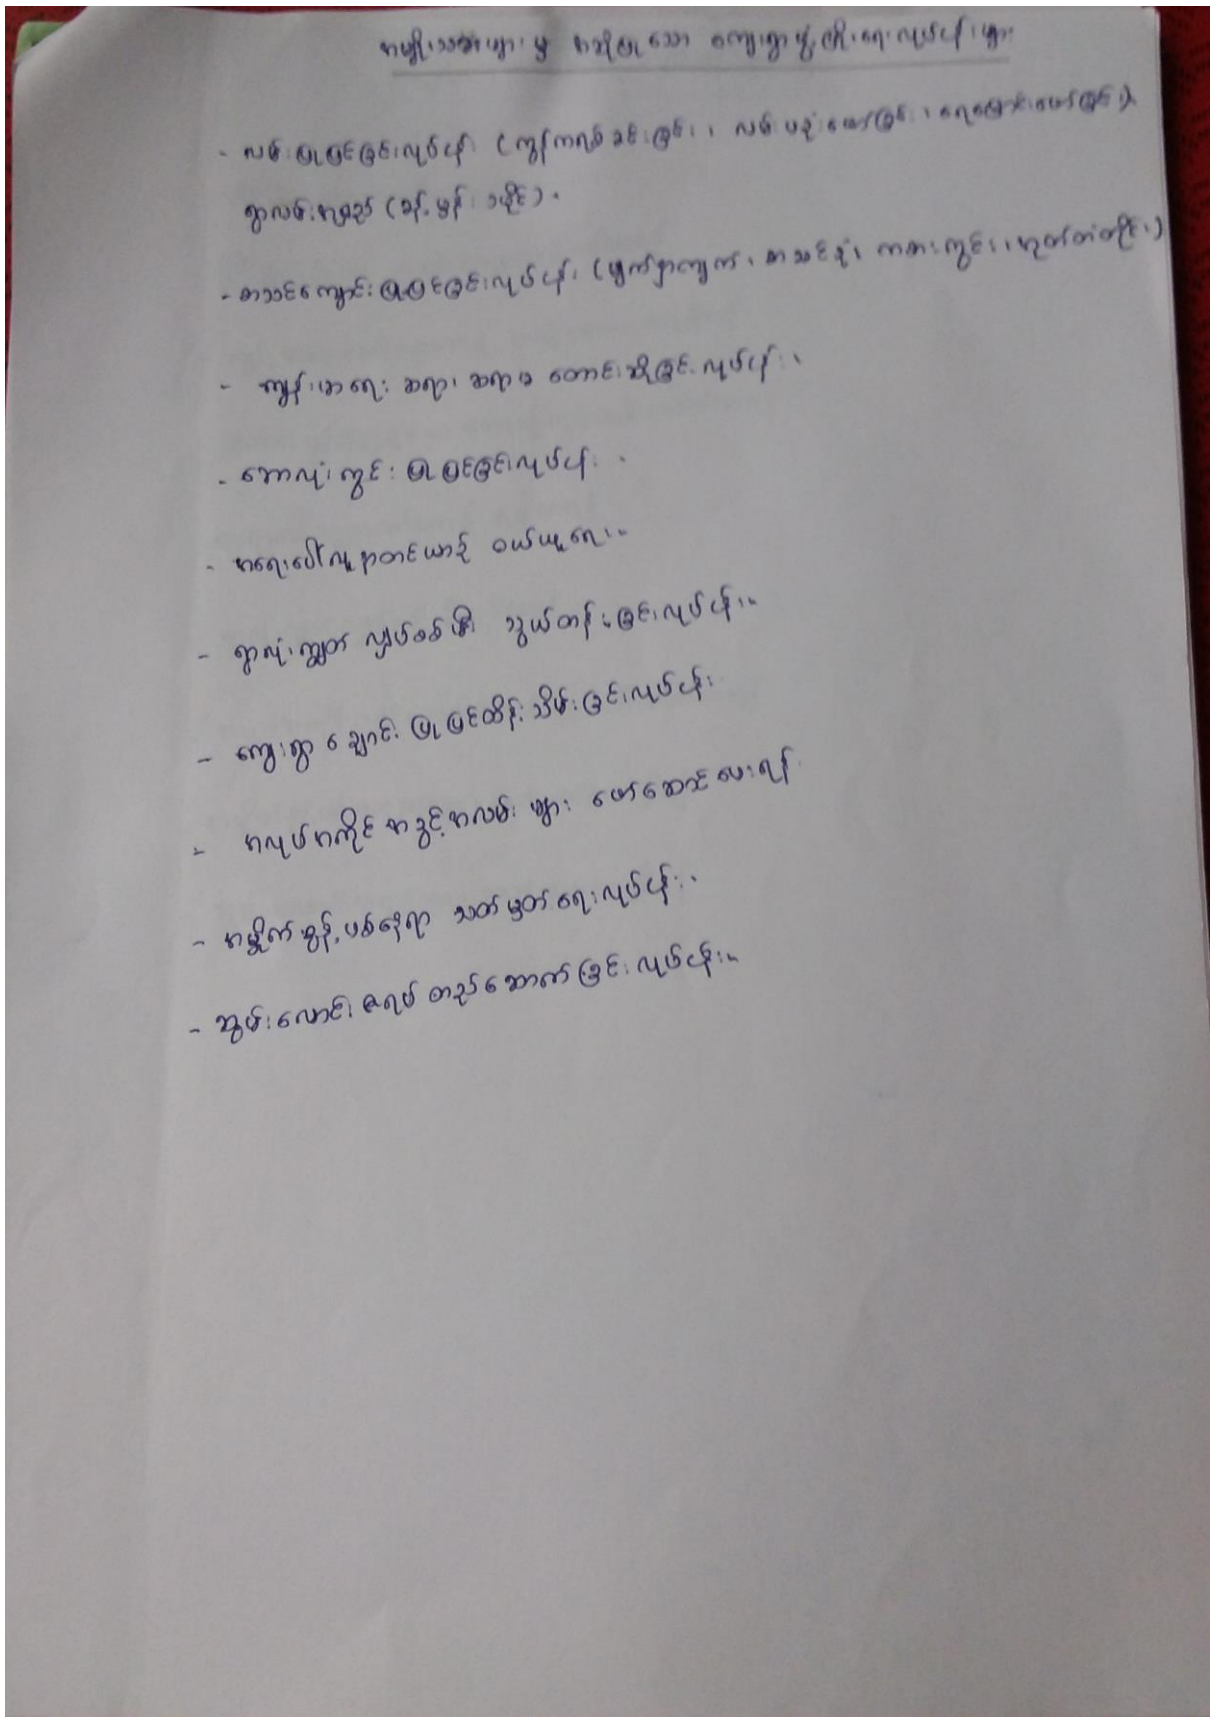 အမျိုးသားများမှ အဆိုပြုသော ကျေးရွာဖွံ့ဖြိုးရေးလုပ်ငန်းများ
- လမ်းပြုပြင်ခြင်းလုပ်ငန်း (ကွန်ကရစ်ခင်းခြင်း၊ လမ်းပခုံးဖော်ခြင်း၊ ရေမြောင်းဖော်ခြင်း)
ရွာလမ်းအရှည် (ခန့်မှန်း မိုင်)။
- စာသင်ကျောင်းပြုပြင်ခြင်းလုပ်ငန်း (မျက်နှာကျက်၊ စာသင်ခုံ၊ ကစားကွင်း၊ အုတ်တံတိုင်း)
- ကျန်းမာရေး ဆရာ၊ ဆရာမ တောင်းဆိုခြင်းလုပ်ငန်း။
- ဘောလုံးကွင်း ပြုပြင်ခြင်းလုပ်ငန်း။
- အရေးပေါ်လူနာတင်ယာဉ် ဝယ်ယူရေး။
- ရွာလုံးကျွတ် လျှပ်စစ်မီး သွယ်တန်းခြင်းလုပ်ငန်း။
- ကျေးရွာ ချောင်း ပြုပြင်ထိန်းသိမ်းခြင်းလုပ်ငန်း
- အလုပ်အကိုင် အခွင့်အလမ်း များ ဖော်ဆောင်ပေးရန်
- အမှိုက်စွန့်ပစ်နေရာ သတ်မှတ်ရေးလုပ်ငန်း။
- ဆွမ်းလောင်း ဇရပ် တည်ဆောက်ခြင်း လုပ်ငန်း။